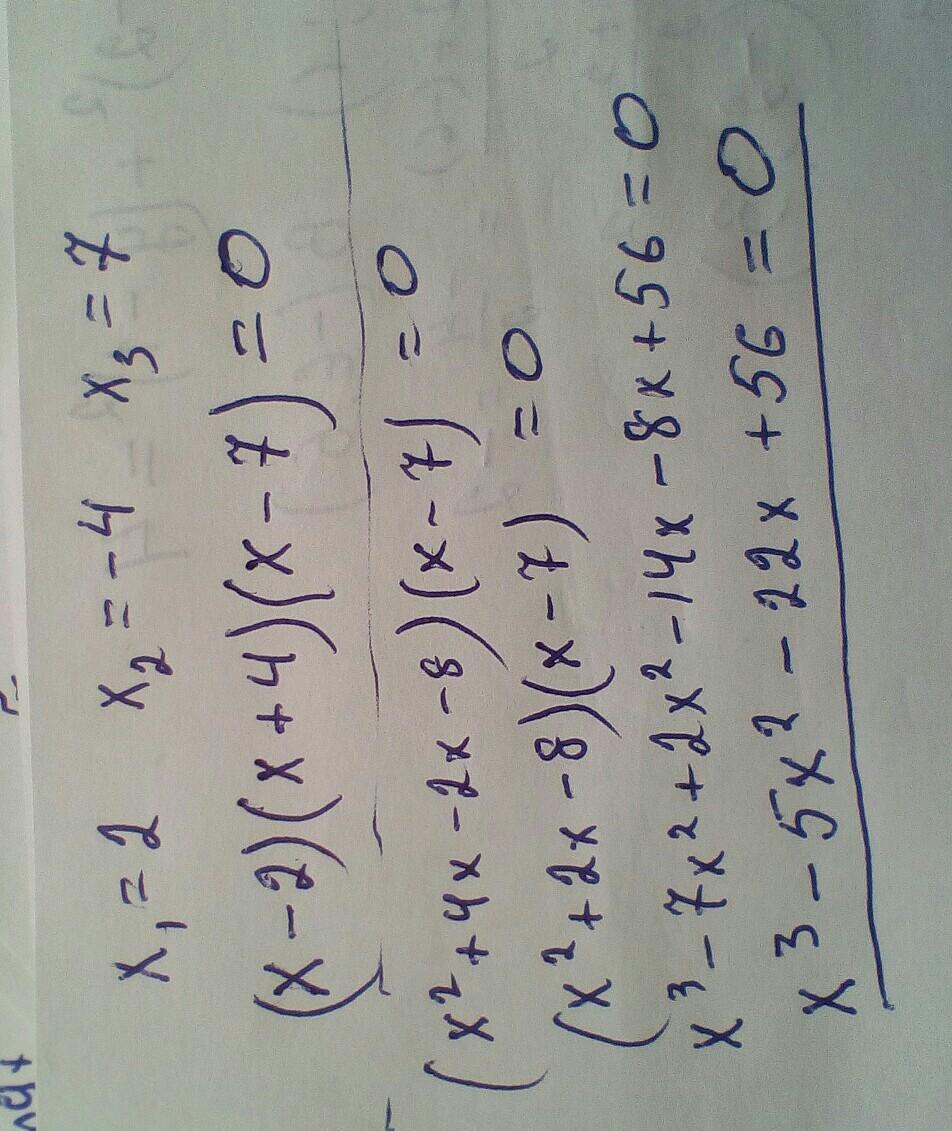 x₁ = 2 x₂ = -4 x₃ = 7
(x - 2)(x + 4)(x - 7) = 0
(x² + 4x - 2x - 8)(x - 7) = 0
(x² + 2x - 8)(x - 7) = 0
x³ - 7x² + 2x² - 14x - 8x + 56 = 0
x³ - 5x² - 22x + 56 = 0